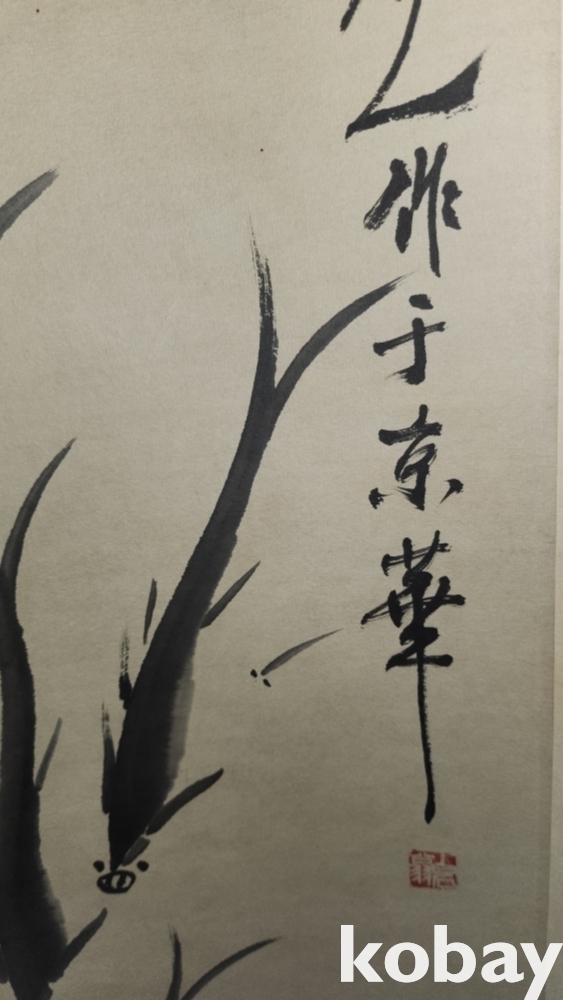 作于京華
kobay